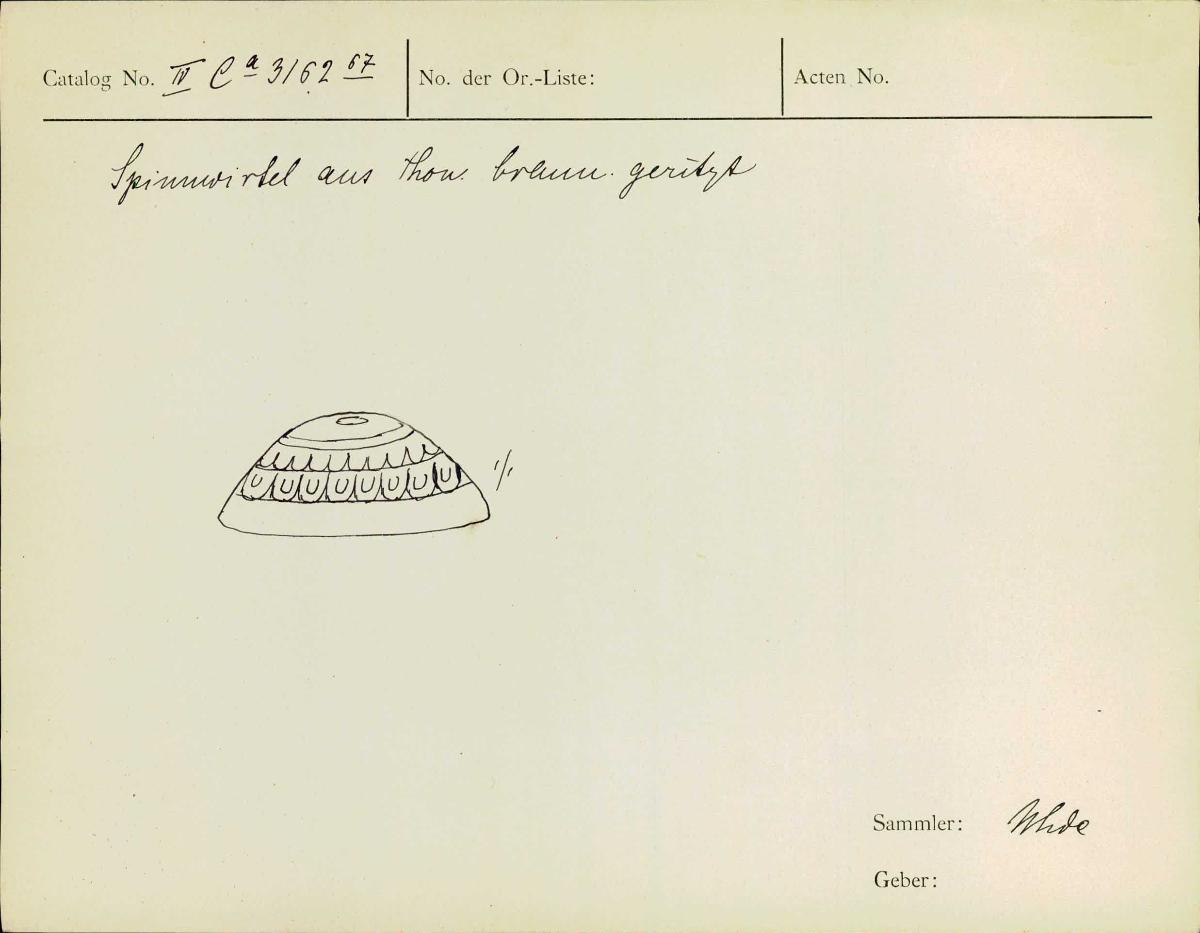 Catalog No. IV Ca 3162 67
No. der Or.-Liste:
Acten No.
Spinnwirtel aus Thon. braun. geritzt
1/1
Sammler: Uhde
Geber: